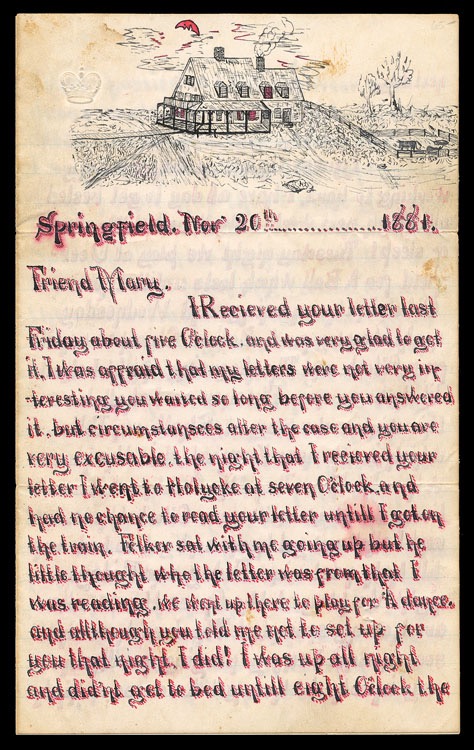 Springfield. Nov 20th......................1881.
Friend Mary.
I Recieved your letter last
Friday about five O'clock. and was very glad to get
it. I was affraid that my letters were not very in-
-teresting you waited so long before you answered
it. but circumstansees alter the case and you are
very excusable. the night that I recieved your
letter I went to Holyoke at seven O'clock. and
had no chance to read your letter untill I got on
the train. Felker sat with me going up but he
little thought who the letter was from that I
was reading. we went up there to play for A dance.
and allthough you told me not to set up for
you that night. I did! I was up all night
and did'nt get to bed untill eight O'clock the